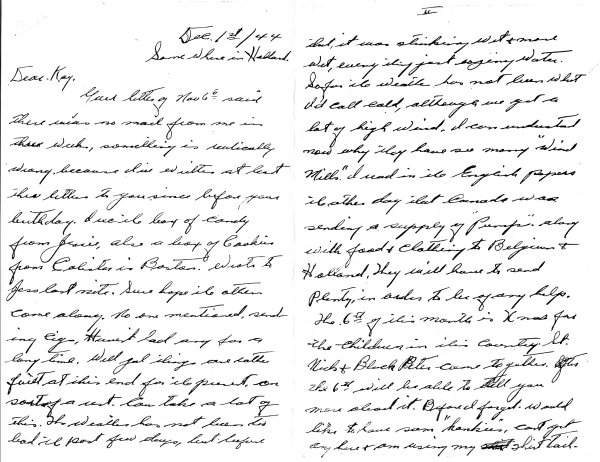 Dec. 1st/44
Somewhere in Holland.
Dear Kay,
Your letter of Nov 6th said
there was no mail from me in
three weeks, something is radically
wrong, because I've written at least
three letters to you since before your
birthday. I rec'd box of candy
from Jessie, also a box of Cookies
from in Boston. Wrote to
Jess last nite. Sure hope the others
come along. No one mentioned, send
ing Cigs, Haven't had any for a
long time. Well gal things are rather
quiet at this end for the present, on
sort of a rest. Can take a lot of
this. The weather has not been too
bad the past few days, but before
II
that, it was stinking wet & more
wet, everything just oozing water.
So far the weather has not been what
I'd call cold, although we get a
lot of high wind. I can understand
now why they have so many "Wind
Mills". I read in the English papers
the other day that Canada was
sending a supply of "Pumps" along
with food & clothing to Belgium &
Holland, They will have to send
Plenty, in order to be of any help.
The 6th of this month is Xmas for
the Children in this Country. St.
Nick & Black Peter come together. After
the 6th will be able to tell you
more about it. Before I forget. would
like to have some hankies, can't get
any here & am using my shirt tail.